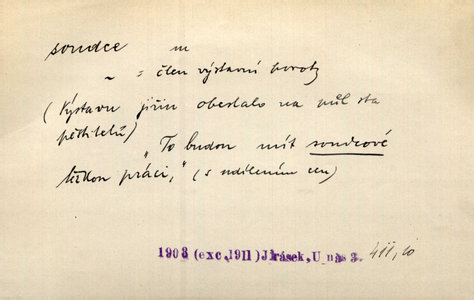 soudce m
~ = člen výstavní poroty
(Výstavu jiřin obeslalo na půl sta
pěstitelů)
„To budou mít soudcové
těžkou práci," (s udílením cen)
1903 (exc. 1911) Jirásek, U nás 3. 411, 10